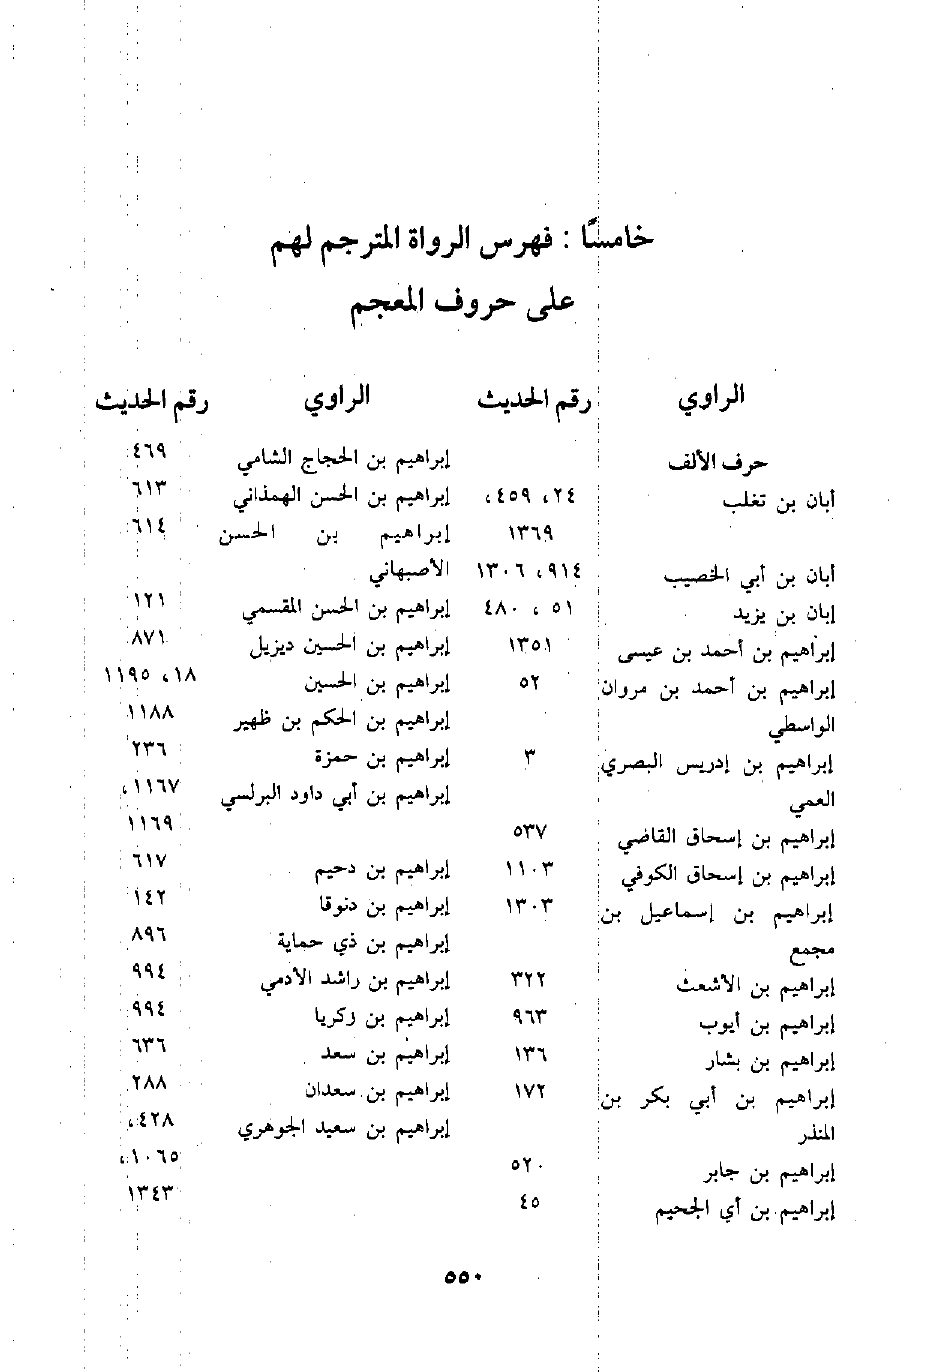 خامسًا : فهرس الرواة المترجم لهم
على حروف المعجم
الراوي رقم الحديث
حرف الألف
أبان بن تغلب ٢٤، ٤٥٩،
١٣٦٩
أبان بن أبي الخصيب ٩١٤، ١٣٠٦
إبان بن يزيد ٥١، ٤٨٠
إبراهيم بن أحمد بن عيسى ١٣٥١
إبراهيم بن أحمد بن مروان ٥٢
الواسطي
إبراهيم بن إدريس البصري ٣
العمي
إبراهيم بن إسحاق القاضي ٥٣٧
إبراهيم بن إسحاق الكوفي ١١٠٣
إبراهيم بن إسماعيل بن ١٣٠٣
مجمع
إبراهيم بن الأشعث ٣٢٢
إبراهيم بن أيوب ٩٦٣
إبراهيم بن بشار ١٣٦
إبراهيم بن أبي بكر بن ١٧٢
المنذر
إبراهيم بن جابر ٥٢٠
إبراهيم بن أي الجحيم ٤٥
الراوي رقم الحديث
إبراهيم بن الحجاج الشامي ٤٦٩
إبراهيم بن الحسن الهمذاني ٦١٣
إبراهيم بن الحسن ٦١٤
الأصبهاني
إبراهيم بن الحسن المقسمي ١٢١
إبراهيم بن الحسين ديزيل ٨٧١
إبراهيم بن الحسين ١٨، ١١٩٥
إبراهيم بن الحكم بن ظهير ١١٨٨
إبراهيم بن حمزة ٢٣٦
إبراهيم بن أبي داود البرلسي ١١٦٧،
١١٦٩
إبراهيم بن دحيم ٦١٧
إبراهيم بن دنوقا ١٤٢
إبراهيم بن ذي حماية ٨٩٦
إبراهيم بن راشد الأدمي ٩٩٤
إبراهيم بن زكريا ٩٩٤
إبراهيم بن سعد ٦٣٦
إبراهيم بن سعدان ٢٨٨
إبراهيم بن سعيد الجوهري ٤٢٨،
١٠٦٥،
١٣٤٣
٥٥٠